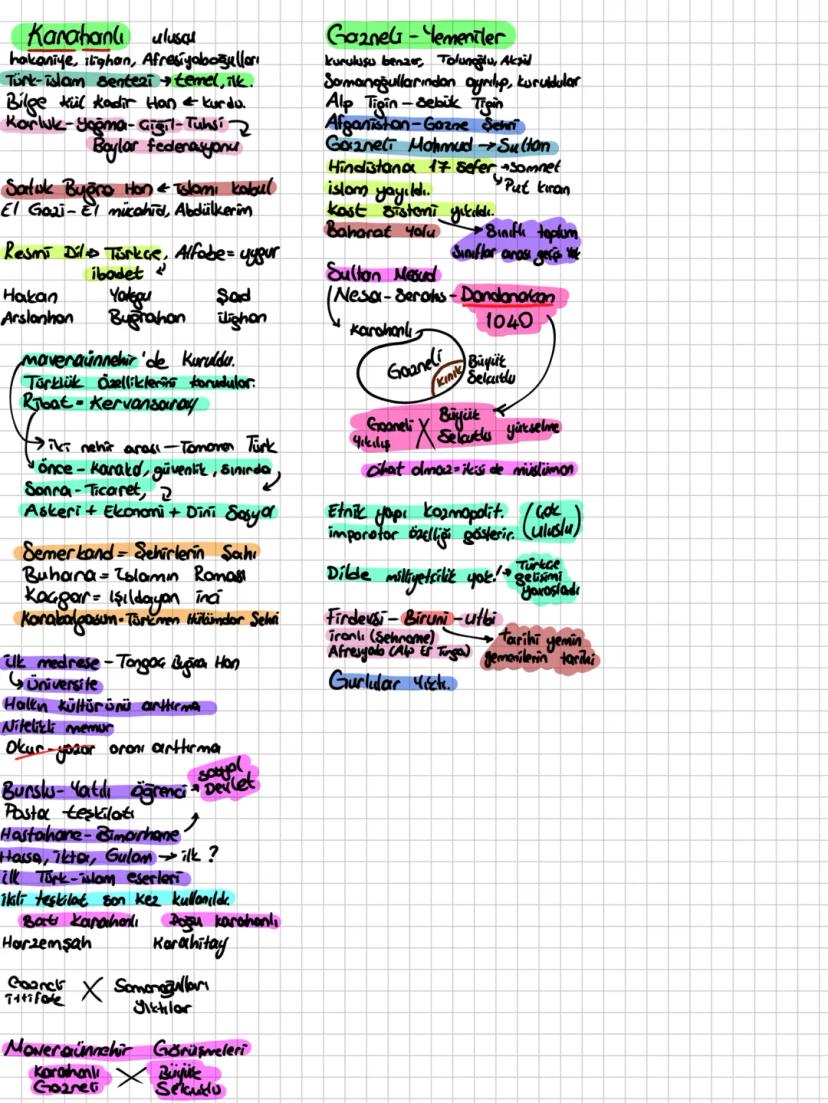 Karahanlı ulusçu
hakaniye, ilighan, Afresiyaboğulları
Türk-islam sentezi → temel, ilk.
Bilge Kül Kadir Han ← kurdu.
Karluk-Yağma-Çigil-Tuhsi
Boylar federasyonu
Satuk Buğra Han ← islamı kabul
El Gazi-El mücahid, Abdülkerim
Resmi Dil → Türkçe, Alfabe = uygur
ibadet
Hakan Yabgu Şad
Arslanhan Buğrahan ilighan
maveraünnehir'de kuruldu.
Türklük özelliklerini korudular.
Ribat = Kervansaray
→ iki nehir arası - Tamamen Türk
önce - Karakol, güvenlik, sınırda
Sonra - Ticaret,
Askeri + Ekonomi + Dini Sosyal
Semerkand = Şehirlerin Şahı
Buhara = islamın Roması
Kaşgar = Işıldayan inci
Karabalgasun = Türkmen Hükümdar Şehri
ilk medrese - Tamgaç Buğra Han
↳ üniversite
Halkın kültürünü arttırma
Nitelikli memur
Okur-yazar oranı arttırma
Burslu-Yatılı öğrenci → Sosyal
Devlet
Posta teşkilatı
Hastahane-Bimarhane
Hassa, ikta, Gulam → ilk ?
ilk Türk-islam eserleri
ikili teşkilat son kez kullanıldı.
Batı Karahanlı Doğu karahanlı
Harzemşah Karahitay
Gazneli X Samanoğulları
ittifak yıktılar
Maveraünnehir Görüşmeleri
Karahanlı X Büyük
Gazneli Selçuklu
Gazneli - Yeminiler
kuruluşu benzer, Tolunoğlu, Akşid
Samanoğullarından ayrılıp, kuruldular
Alp Tigin - Sebük Tigin
Afganistan - Gazne Şehri
Gazneli Mahmud → Sultan
Hindistana 17 sefer → Somnat
↳ Put kıran
islam yayıldı.
Kast Sistemi yıkıldı.
Baharat Yolu
Sınıflı toplum
Sınıflar arası geçiş yok
Sultan Mesud
Nesa-Serahs-Dandanakan
1040
Karahanlı
Gazneli
Kınık
Büyük
Selçuklu
Gazneli X Büyük
yıkılış Selçuklu yükselme
cihat olmaz = ikisi de müslüman
Etnik yapı kozmopolit. (Çok
imparator özelliği gösterir. uluslu)
Dilde milliyetçilik yok! → Türkçe
gelişimi
yavaşladı
Firdevsi - Biruni - utbi
iranlı (Şehname)
Afresyab (Alp Er Tunga)
tarihi yemin
yemenilerin tarihi
Gurlular Yıktı.